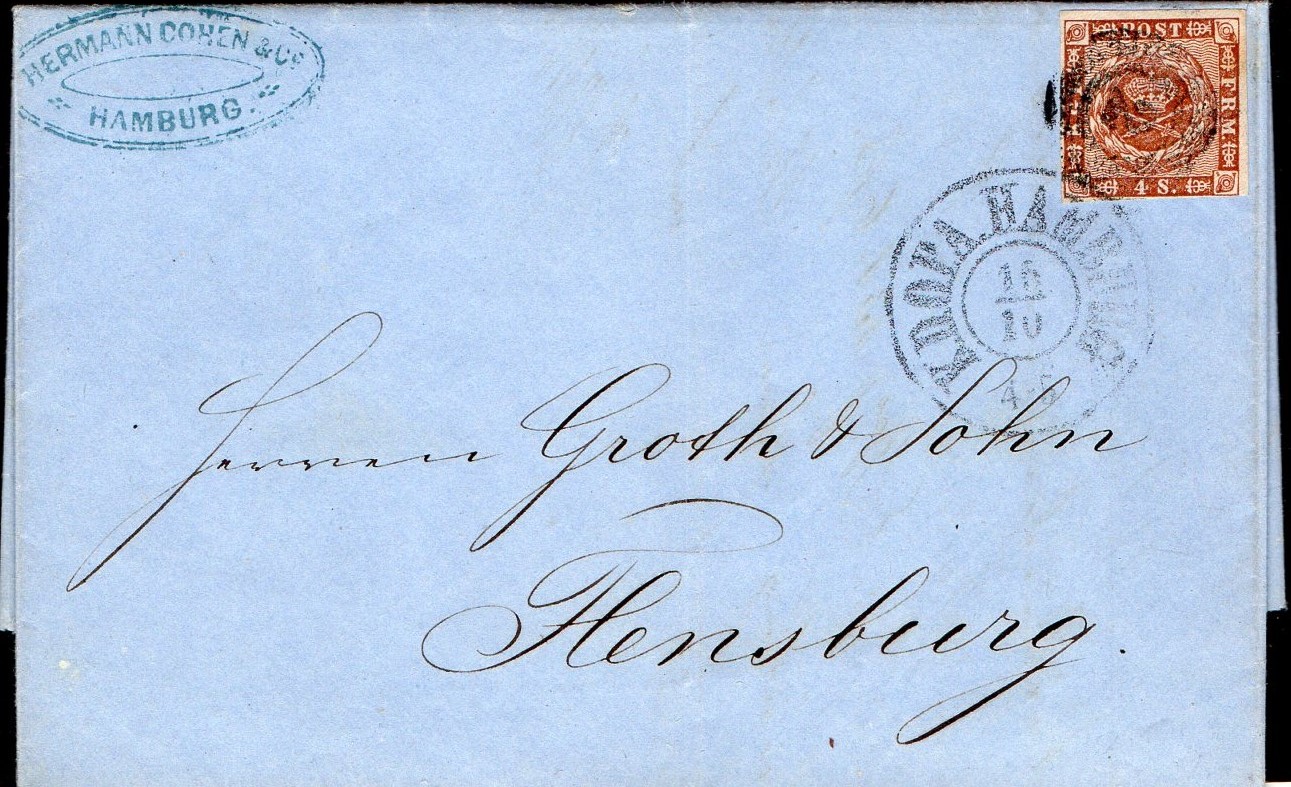 HERMANN COHEN & Co
HAMBURG.
POST
F.R.M.
4 S.
K.D.O.P.A. HAMBURG
16
10
4-5
Herren Groth & Sohn
Flensburg.